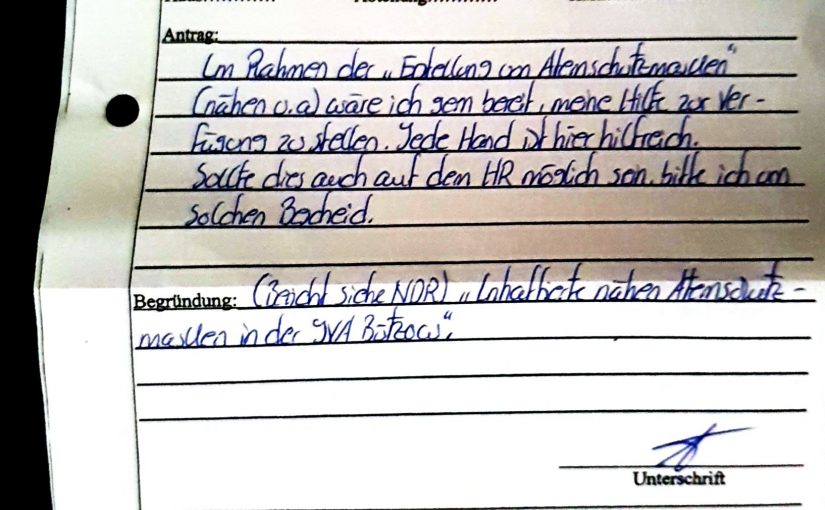 Antrag:
Im Rahmen der „Erstellung von Atemschutzmasken“
(nähen u.a) wäre ich gern bereit, meine Hilfe zur Ver-
fügung zu stellen. Jede Hand ist hier hilfreich.
Sollte dies auch auf dem HR möglich sein, bitte ich um
solchen Bescheid.
Begründung: (Bericht siehe NDR) „Inhaftierte nähen Atemschutz-
masken in der JVA Bützow“.
Unterschrift